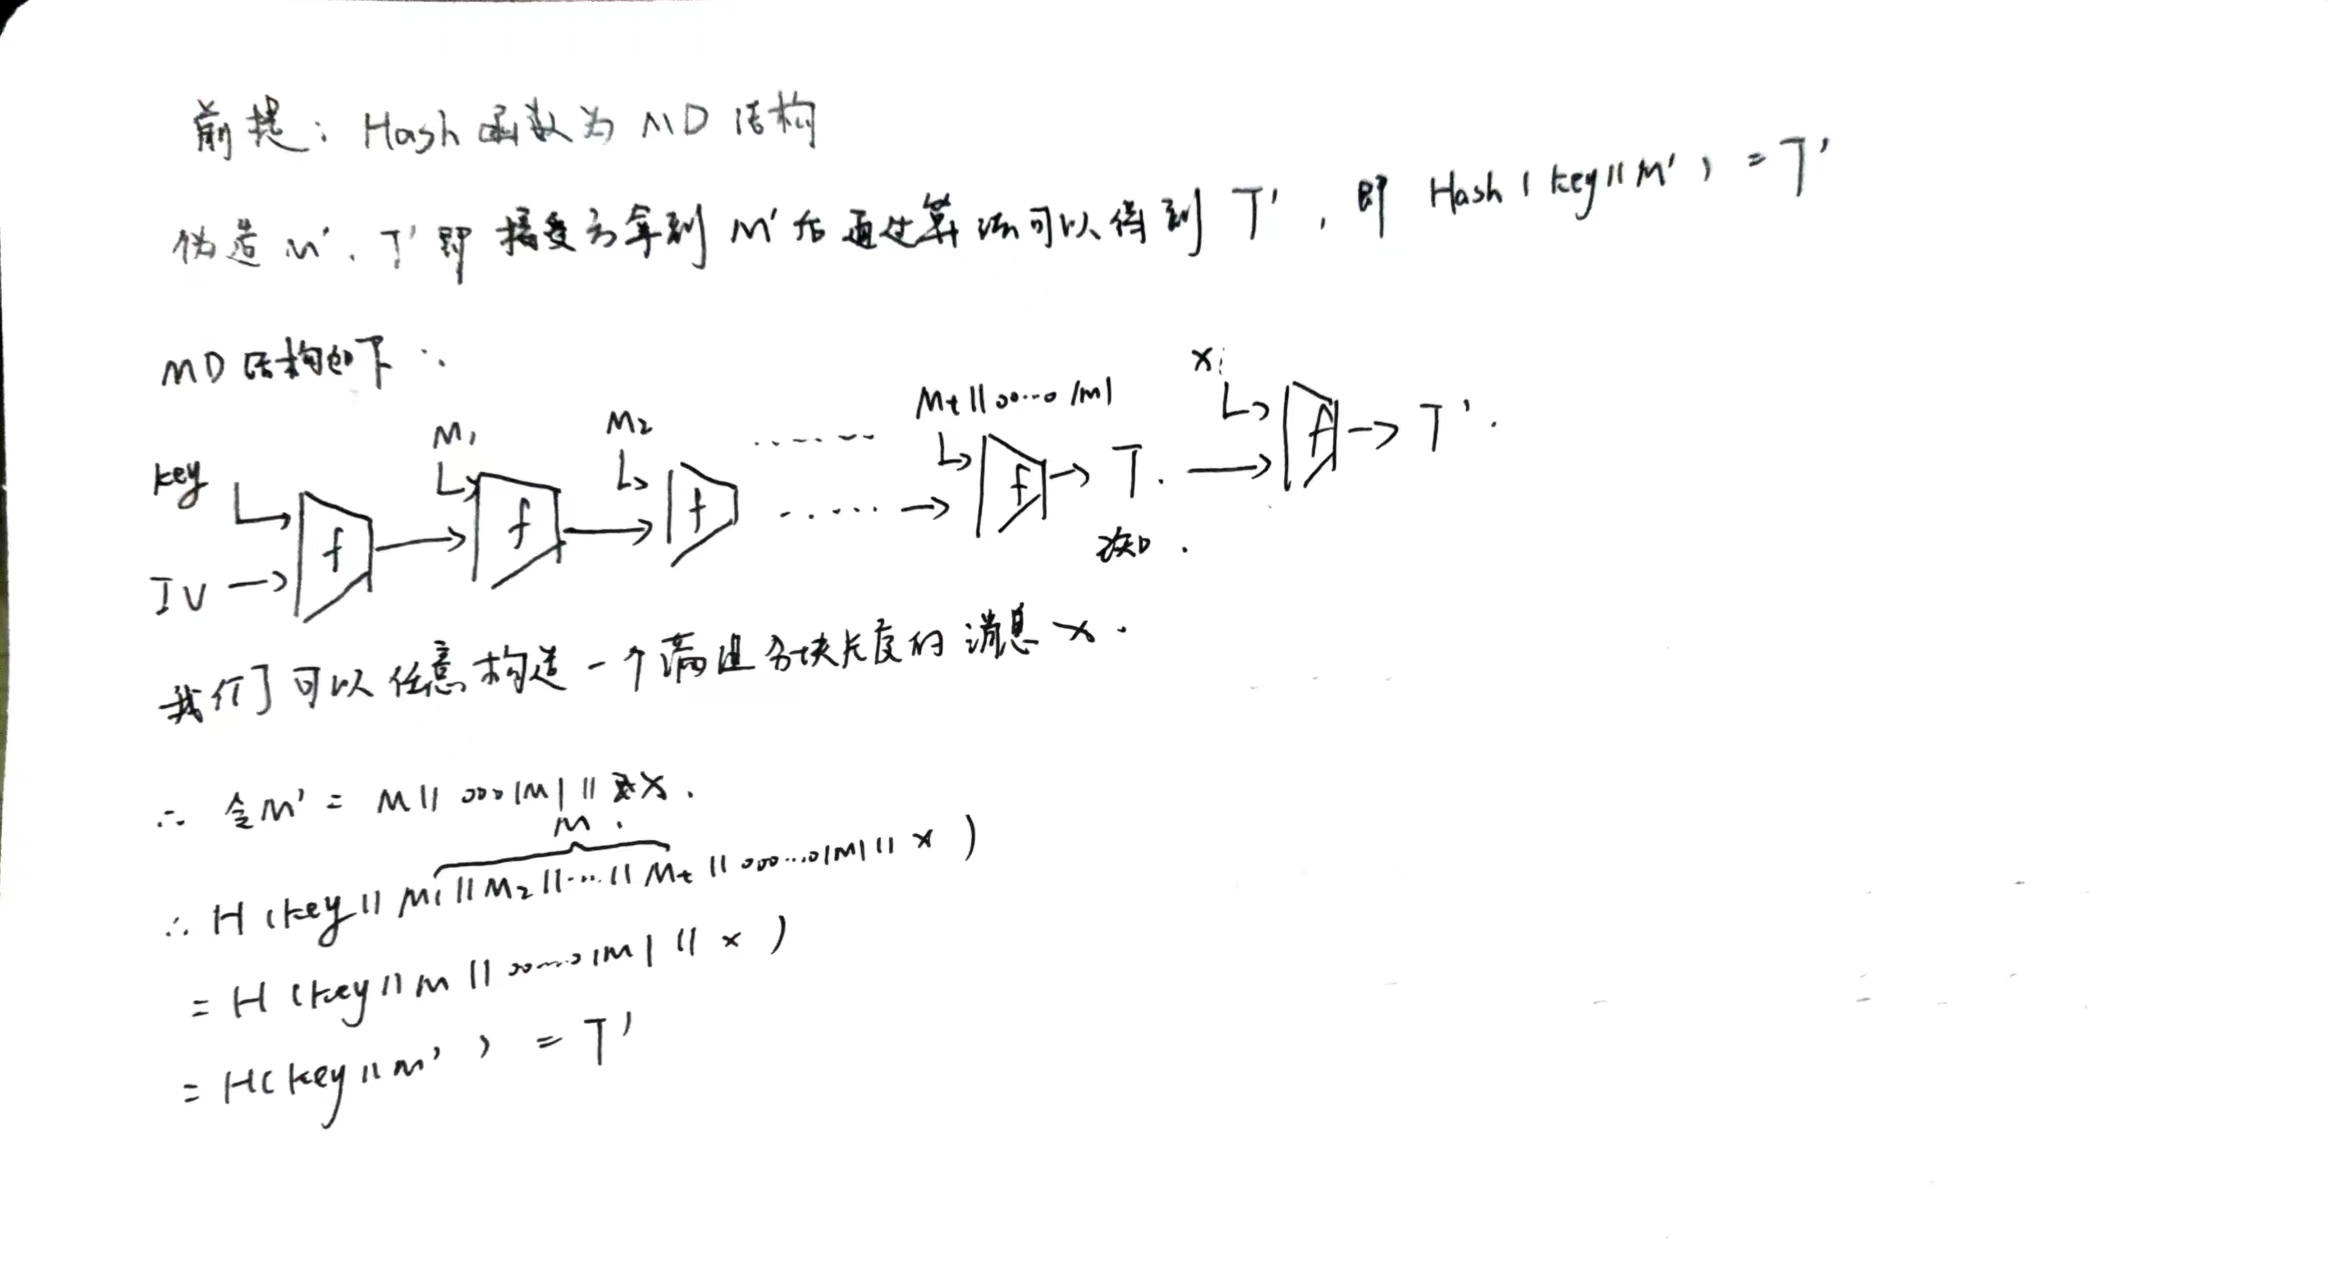 前提: Hash 函数为 MD 结构
伪造 M'、T' 即 接受方拿到 M' 后 通过算法可以得到 T' , 即 Hash (key||M') = T'
MD 结构如下:
key
IV
f
M1
f
M2
f
......
......
Mt||00...0|M|
f
T.
已知.
x:
f
T'.
我们可以任意构造一个满足分块长度的消息 x.
∴ 令M' = M||000|M| || x.
M.
∴ H(key||M1||M2||...||Mt||000...0|M| || x)
= H(key||M||00...0|M| || x)
= H(key||M') = T'